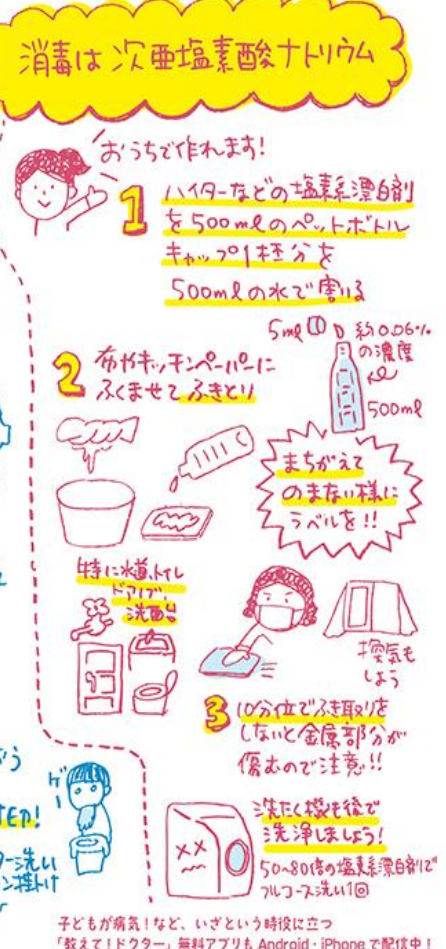 消毒は次亜塩素酸ナトリウム
おうちで作れます!
1
ハイターなどの塩素系漂白剤
を500mlのペットボトル
キャップ1杯分を
500mlの水で割る
5ml
約0.06%
の濃度
500ml
2
布やキッチンペーパーに
ふくませてふきとり
まちがえて
のまない様に
ラベルを!!
特に水道、トイレ
ドアノブ、
洗面台
換気も
しよう
3
10分位でふき取りを
しないと金属部分が
傷むので注意!!
洗たく機も後で
洗浄しましょう!
50~80倍の塩素系漂白剤で
フルコース洗い1回
ゲー
子どもが病気!など、いざという時役に立つ
「教えて!ドクター」無料アプリも Android , iPhone で配信中!